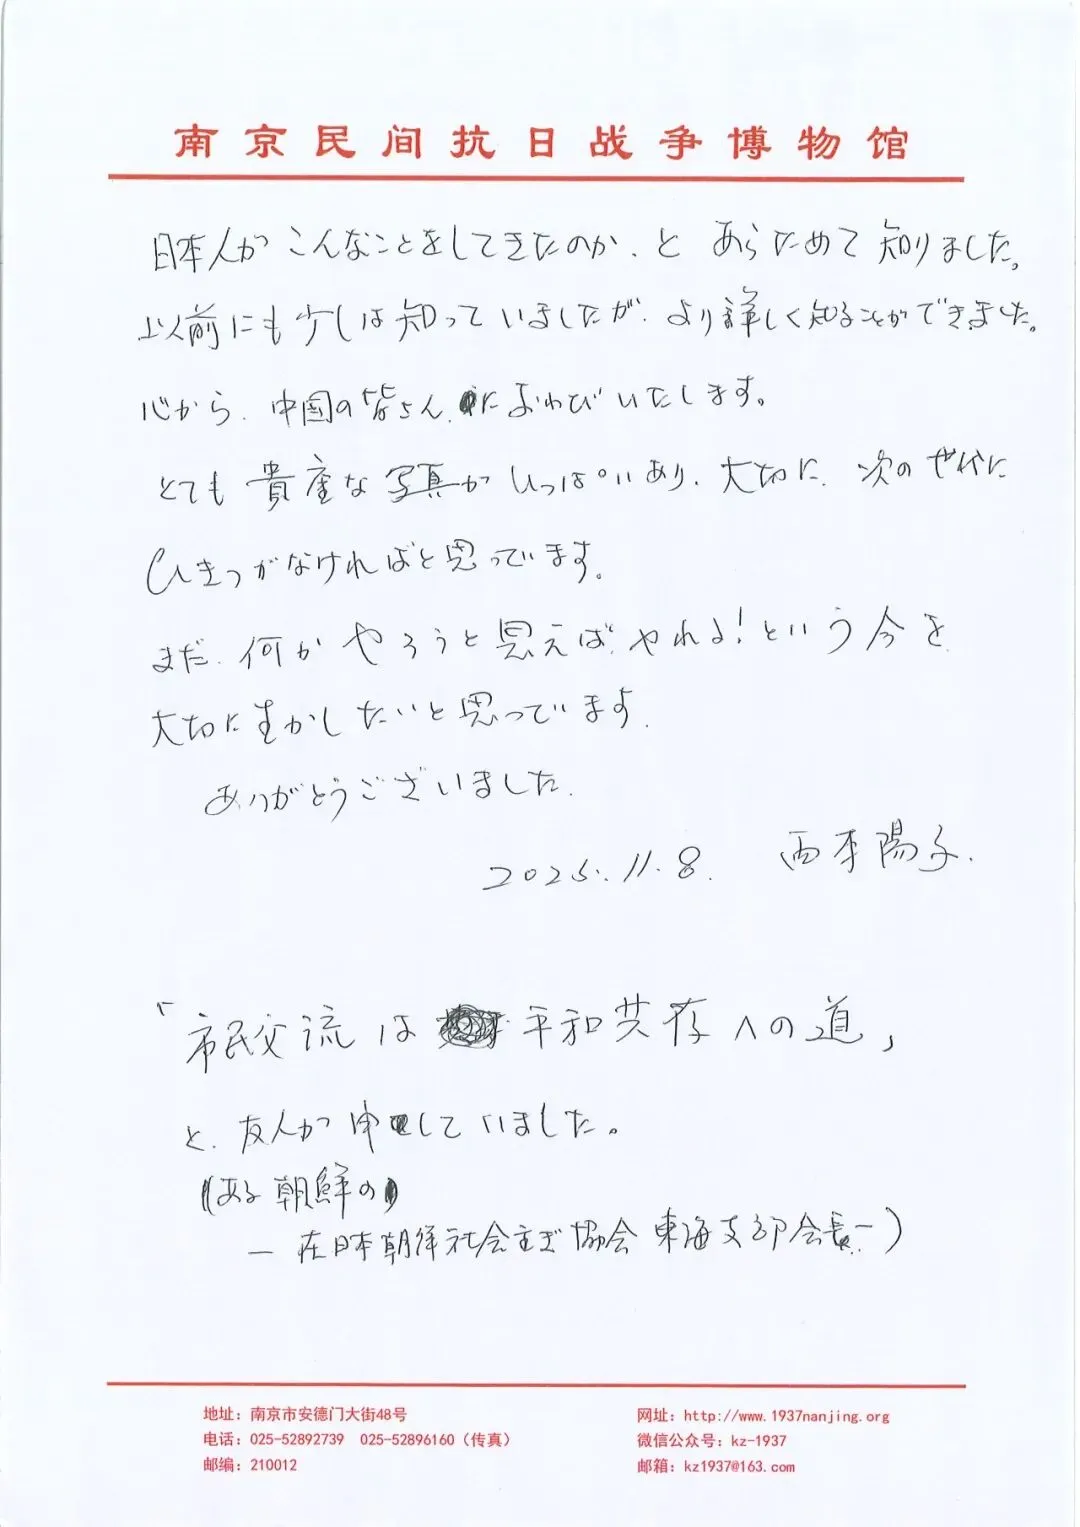 南京民间抗日战争博物馆
日本人がこんなことをしてきたのか、と あらためて知りました。
以前にも少しは知っていましたが、より詳しく知ることができました。
心から、中国の皆さんにおわびいたします。
とても貴重な写真がいっぱいあり、大切に、次の世代に
ひきつがなければと思っています。
まだ、何かやろうと思えば、やれる!という今を
大切に生かしたいと思っています。
ありがとうございました。
2025.11.8. 西本陽子.
「市民交流は 平和共存への道」
と、友人が申していました。
(ある朝鮮の)
ー在日本朝鮮社会主ぎ協会 東海支部会長ー)
地址：南京市安德门大街48号
电话：025-52892739 025-52896160（传真）
邮编：210012
网址：http://www.1937nanjing.org
微信公众号：kz-1937
邮箱：kz1937@163.com